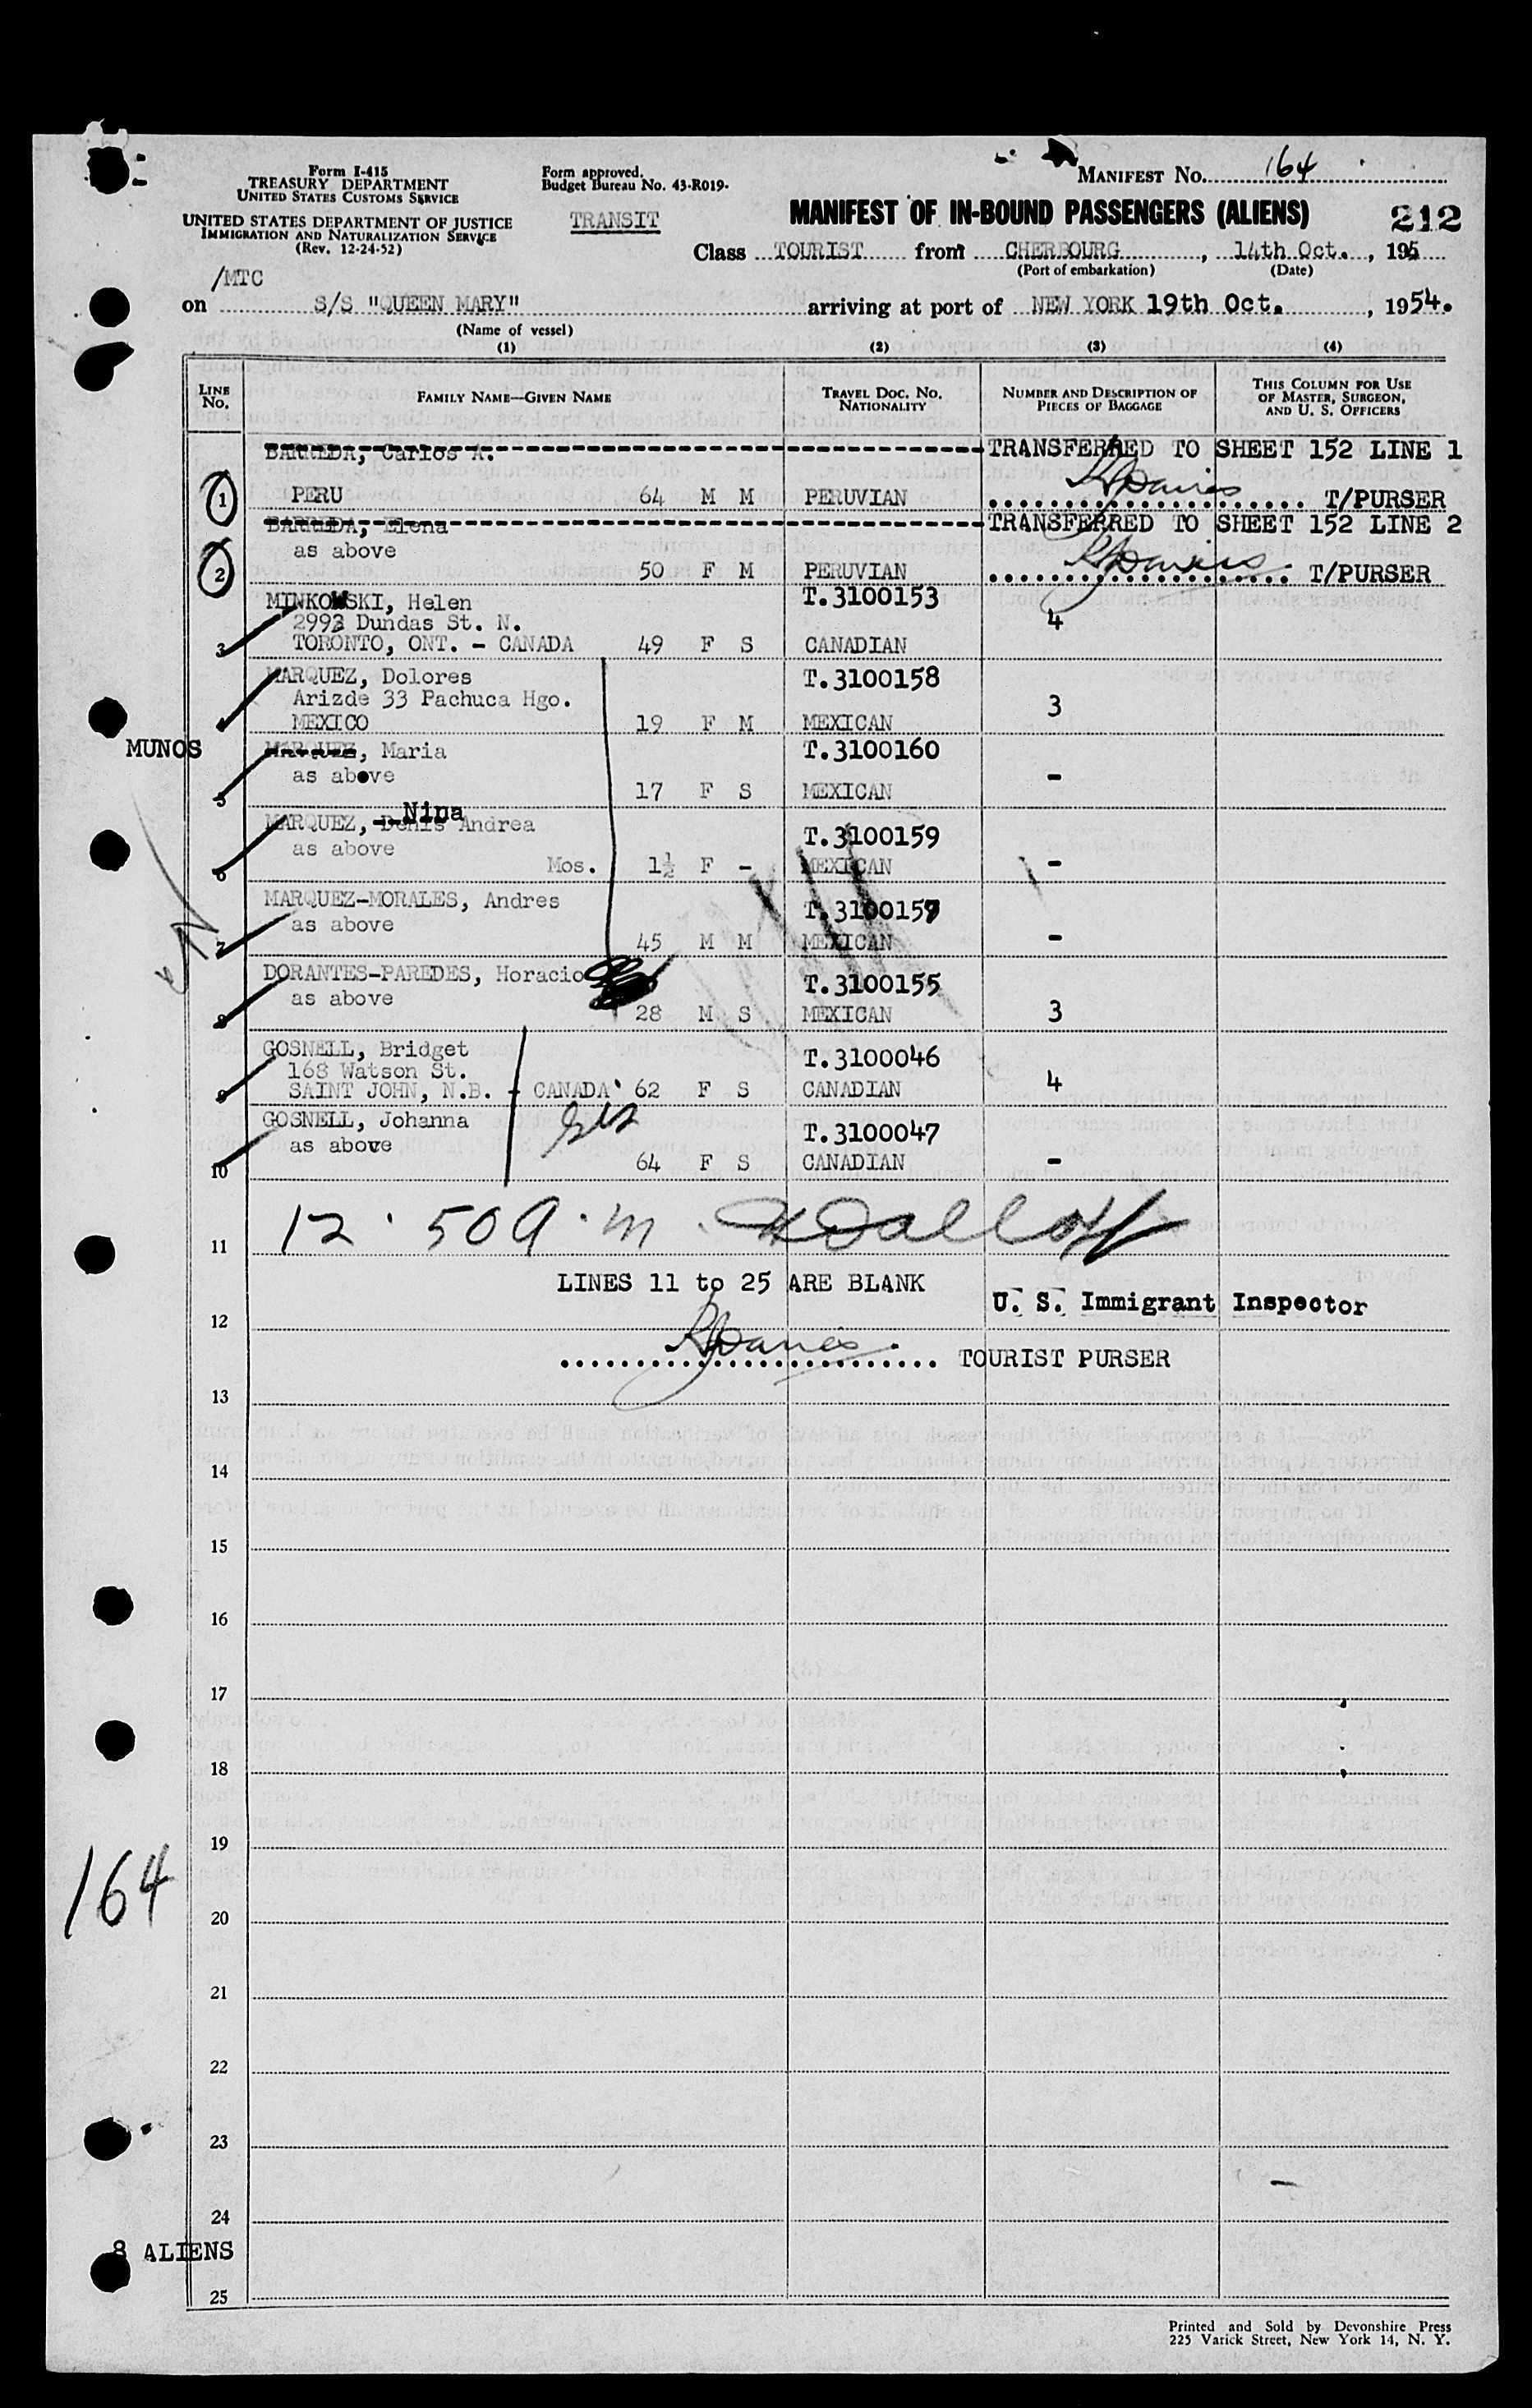 Form I-415
TREASURY DEPARTMENT
UNITED STATES CUSTOMS SERVICE
UNITED STATES DEPARTMENT OF JUSTICE
IMMIGRATION AND NATURALIZATION SERVICE
(Rev. 12-24-52)
Form approved.
Budget Bureau No. 43-R019-
TRANSIT
MANIFEST NO. 164
MANIFEST OF IN-BOUND PASSENGERS (ALIENS) 212
Class TOURIST from CHERBOURG, 14th Oct., 195
(Port of embarkation) (Date)
/MTC
on S/S "QUEEN MARY" arriving at port of NEW YORK 19th Oct., 1954.
(Name of vessel)
(1) (2) (3) (4)
LINE NO. FAMILY NAME—GIVEN NAME TRAVEL DOC. NO. NATIONALITY NUMBER AND DESCRIPTION OF PIECES OF BAGGAGE THIS COLUMN FOR USE OF MASTER, SURGEON, AND U. S. OFFICERS
BARREDA, Carlos A. TRANSFERRED TO SHEET 152 LINE 1
1 PERU 64 M M PERUVIAN T/PURSER
BARREDA, Elena TRANSFERRED TO SHEET 152 LINE 2
as above
2 50 F M PERUVIAN T/PURSER
MINKOWSKI, Helen T.3100153
2993 Dundas St. N. 4
3 TORONTO, ONT. - CANADA 49 F S CANADIAN
MARQUEZ, Dolores T.3100158
Arizde 33 Pachuca Hgo. 3
4 MEXICO 19 F M MEXICAN
MUNOS MARQUEZ, Maria T.3100160
as above -
5 17 F S MEXICAN
Nina
MARQUEZ, Denis Andrea T.3100159
as above
6 Mos. 1½ F - MEXICAN -
MARQUEZ-MORALES, Andres T.3100157
as above
7 45 M M MEXICAN -
DORANTES-PAREDES, Horacio T.3100155
as above
8 28 M S MEXICAN 3
GOSNELL, Bridget T.3100046
168 Watson St.
9 SAINT JOHN, N.B. - CANADA 62 F S CANADIAN 4
GOSNELL, Johanna T.3100047
as above
10 64 F S CANADIAN -
11 12.50 a.m.
LINES 11 to 25 ARE BLANK
U. S. Immigrant Inspector
12
TOURIST PURSER
13
14
15
16
17
18
19
164
20
21
22
23
24
8 ALIENS
25
Printed and Sold by Devonshire Press
225 Varick Street, New York 14, N. Y.